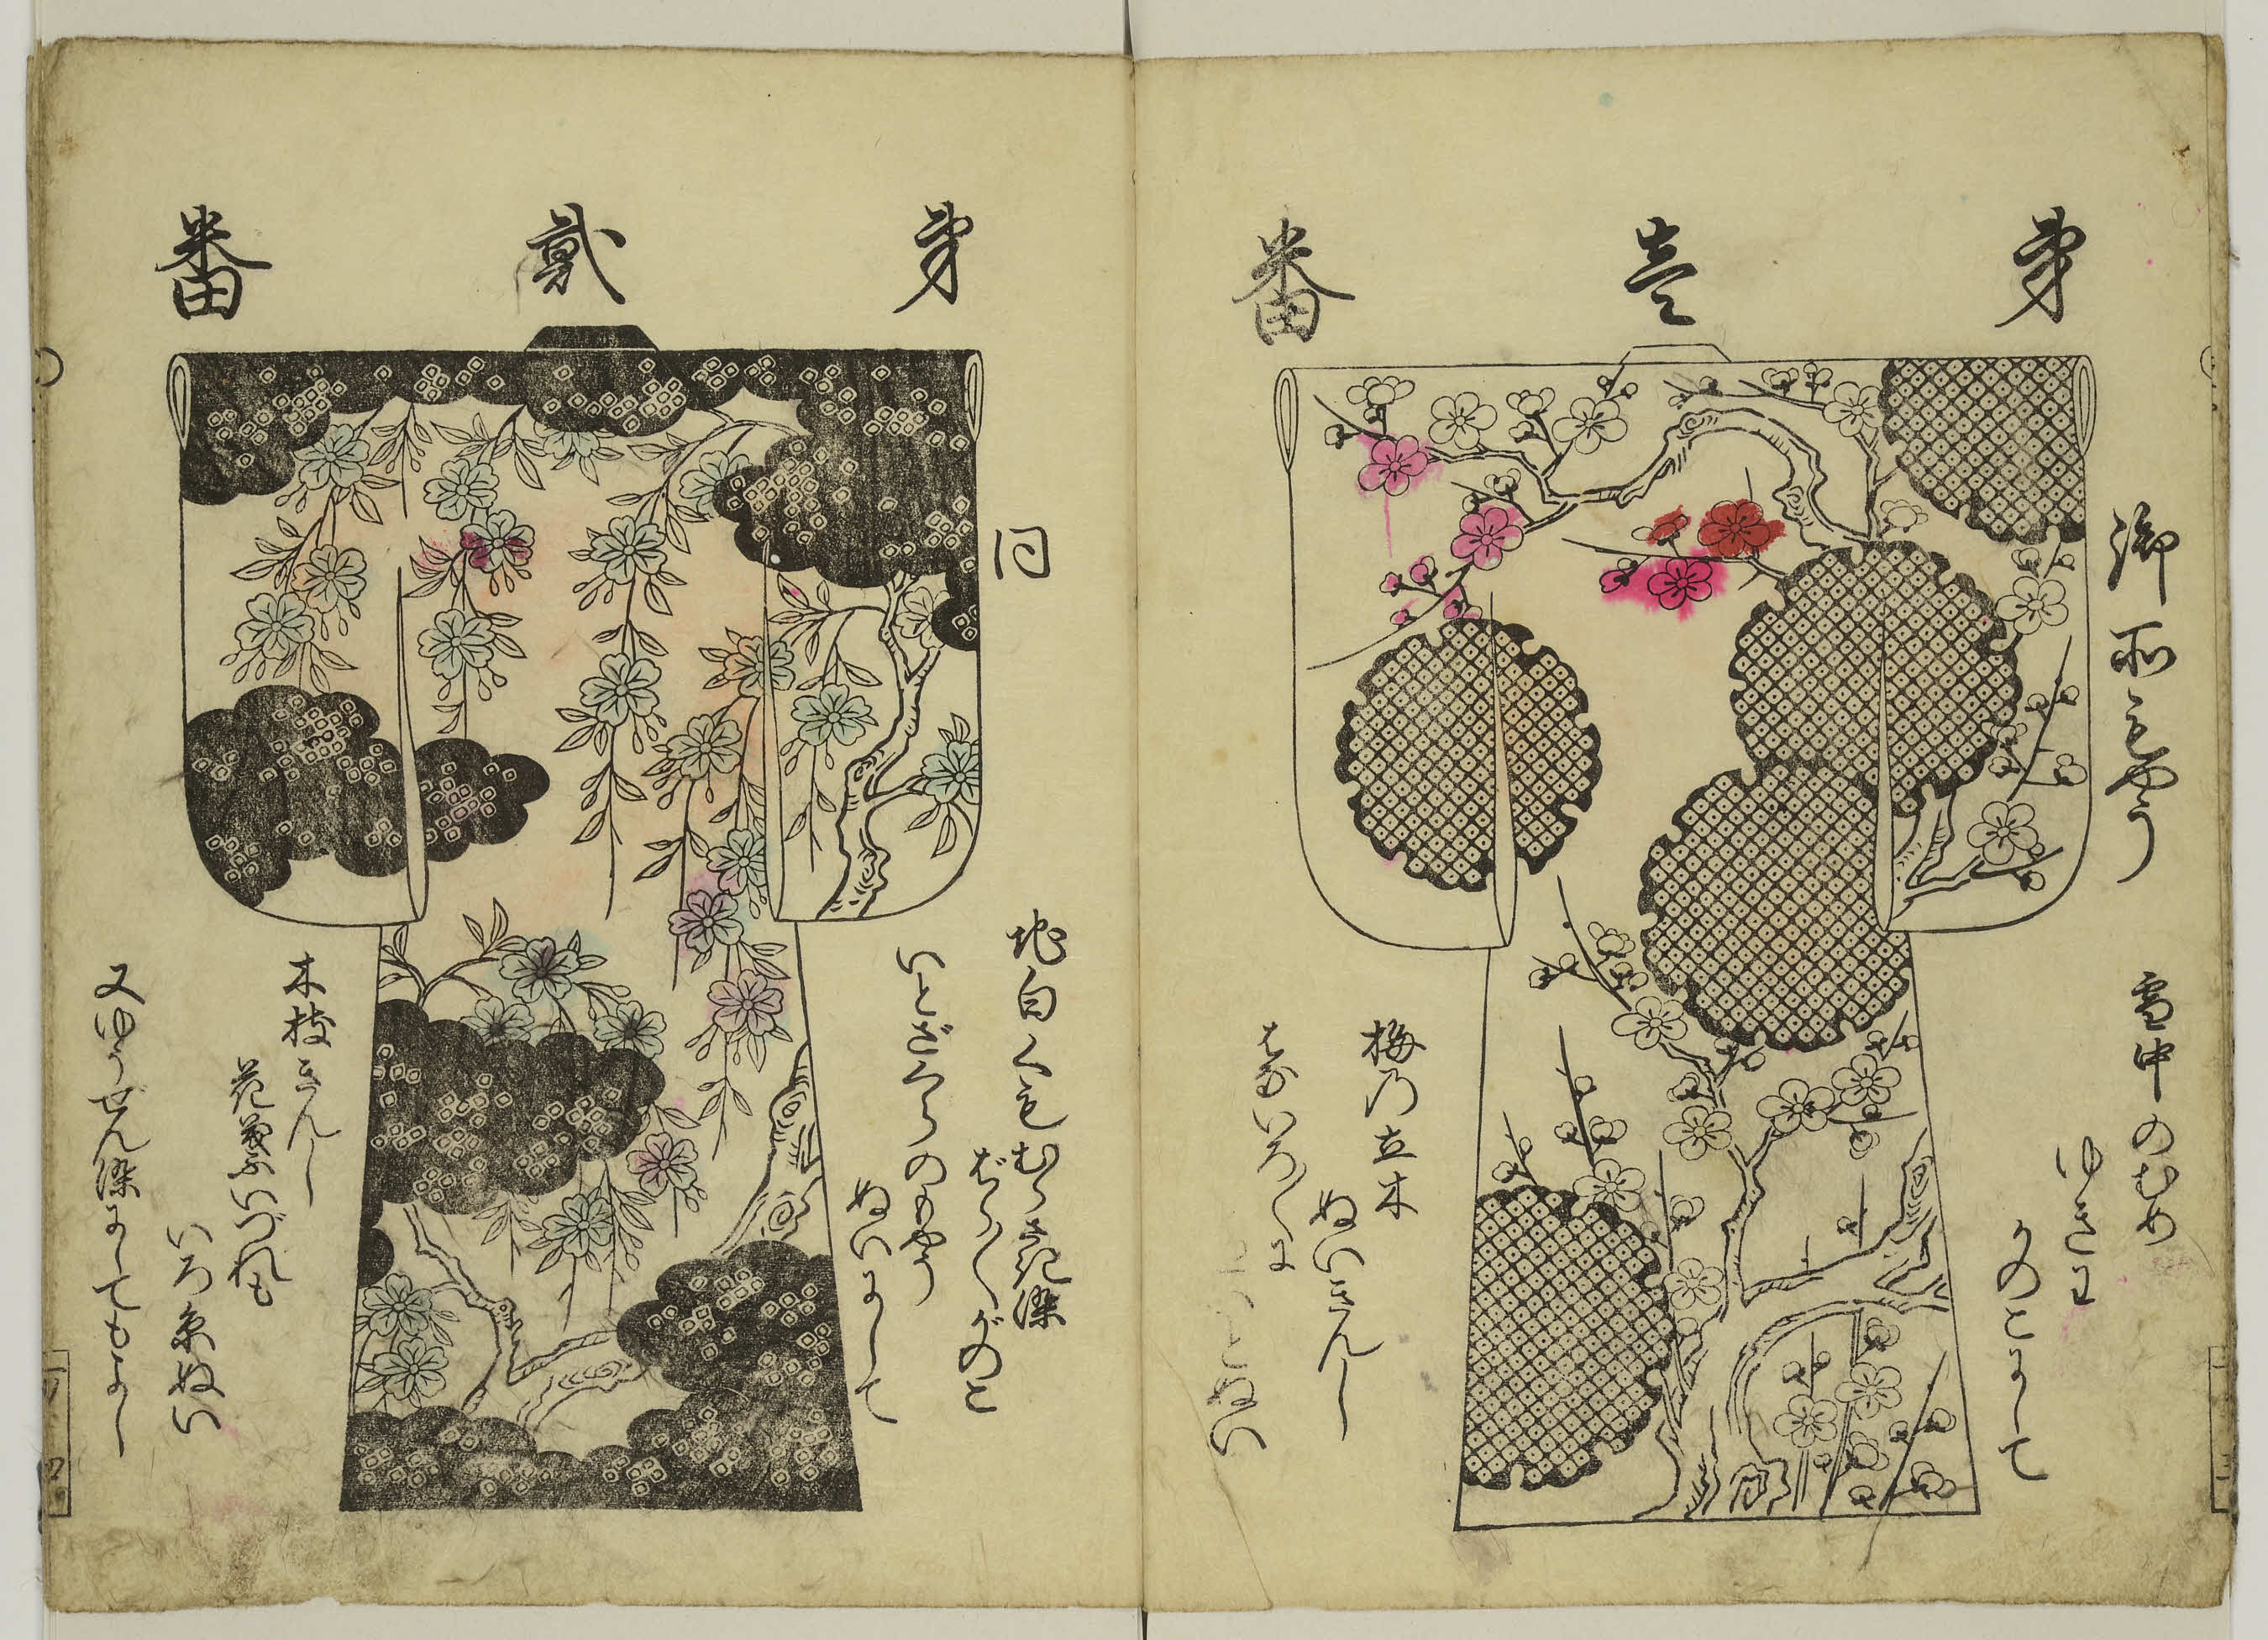 第壱番
御所もやう
雪中のむめ
ゆきは
かのこにして
梅乃立木
ぬいきんし
とぬい
第弐番
同
地白くもむらさき染
ばら〱がのこ
いとざくらのもやう
ぬいにして
木枝きんし
花葉ふいづれも
いろ糸ぬい
又ゆうぜん染にしてもよし